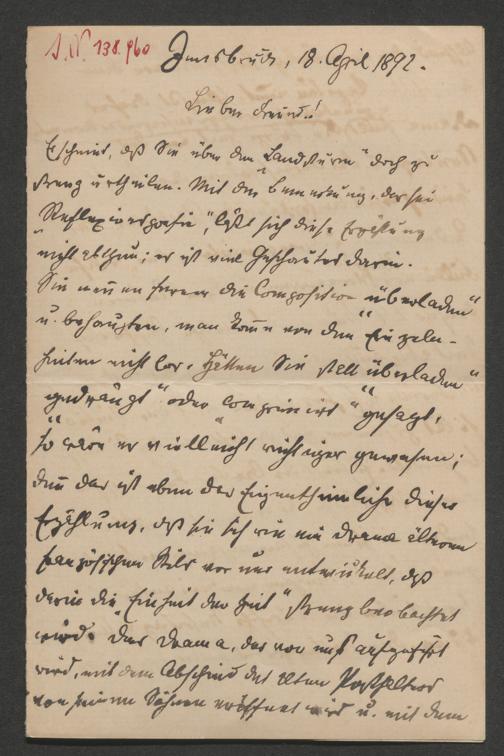 I.N. 138.960
Innsbruck, 18. April 1892.
Lieber Freund!
Es scheint, daß Sie über den „Landsturm" doch zu
streng urtheilen. Mit der „Bemerkung, das sei
Reflexionspoesie", läßt sich diese Erzählung
nicht abthun; es ist viel Geschautes darin.
Sie nennen ferner die Composition „überladen"
u. behaupten, man komme von den „Einzeln-
heiten nicht los. Hätten Sie statt „überladen"
„gedrängt" oder „comprimirt" gesagt,
so wäre es vielleicht richtiger gewesen;
denn das ist eben das Eigenthümliche dieser
Erzählung, daß sie sich wie ein Drama älteren
französischen Stils vor uns entwickelt, daß
darin die „Einheit der Zeit" streng beobachtet
wird. Das Drama, das vor uns aufgeführt
wird, mit dem Abschied des alten Posthalters
von seinen Söhnen eröffnet wird u. mit dem